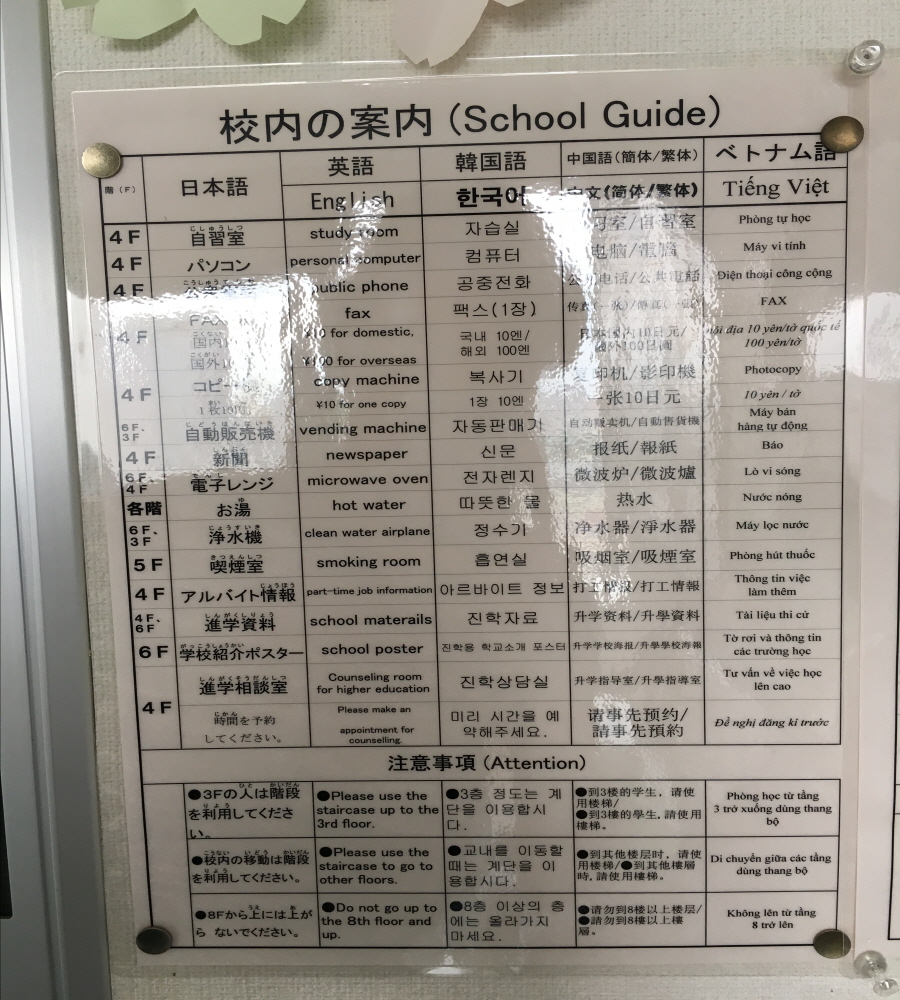 校内の案内 (School Guide)
階 (F) 日本語 英語 韓国語 中国語(簡体/繁体) ベトナム語
English 한국어 中文(简体/繁体) Tiếng Việt
4F 自習室 study room 자습실 自習室 Phòng tự học
4F パソコン personal computer 컴퓨터 电脑/電腦 Máy vi tính
4F public phone 공중전화 电话/公共電話 Điện thoại công cộng
fax 팩스(1장) FAX
4F 国内 ¥10 for domestic, 국내 10엔/ 10 yên/tờ quốc tế
해외 100엔 100 yên/tờ
国外 ¥100 for overseas
4F コピー copy machine 복사기 印机/影印機 Photocopy
¥10 for one copy 1장 10엔 一张10日元 10 yên / tờ
6F、3F 自動販売機 vending machine 자동판매기 自动贩卖机/自動售貨機 Máy bán
hàng tự động
4F 新聞 newspaper 신문 报纸/報紙 Báo
6F、4F 電子レンジ microwave oven 전자렌지 微波炉/微波爐 Lò vi sóng
各階 お湯 hot water 따뜻한 물 热水 Nước nóng
6F、3F 浄水機 clean water airplane 정수기 净水器/淨水器 Máy lọc nước
5F 喫煙室 smoking room 흡연실 吸烟室/吸煙室 Phòng hút thuốc
4F アルバイト情報 part-time job information 아르바이트 정보 打工情报/打工情報 Thông tin việc
làm thêm
4F、6F 進学資料 school materails 진학자료 升学资料/升學資料 Tài liệu thi cử
6F 学校紹介ポスター school poster 진학용 학교소개 포스터 升学学校海报/升學學校海報 Tờ rơi và thông tin
các trường học
4F 進学相談室 Counseling room
for higher education 진학상담실 升学指导室/升學指導室 Tư vấn về việc học
lên cao
時間を予約
してください。 Please make an
appointment for
counselling. 미리 시간을 예
약해주세요. 请事先预约/
請事先預約 Đề nghị đăng kí trước
注意事項 (Attention)
●3Fの人は階段
を利用してくださ
い。 ●Please use the
staircase up to the
3rd floor. ●3층 정도는 계
단을 이용합시
다. ●到3楼的学生，请使
用楼梯/
●到3樓的學生,請使用
樓梯。 Phòng học từ tầng
3 trở xuống dùng thang
bộ
●校内の移動は階段
を利用してください。 ●Please use the
staircase to go to
other floors. ●교내를 이동할
때는 계단을 이
용합시다. ●到其他楼层时，请使
用楼梯/●到其他樓層
時,請使用樓梯。 Di chuyển giữa các tầng
dùng thang bộ
●8Fから上には上が
ら ないでください。 ●Do not go up to
the 8th floor and
up. ●8층 이상의 층
에는 올라가지
마세요. ●请勿到8楼以上楼层/
●請勿到8樓以上樓
層。 Không lên từ tầng
8 trở lên